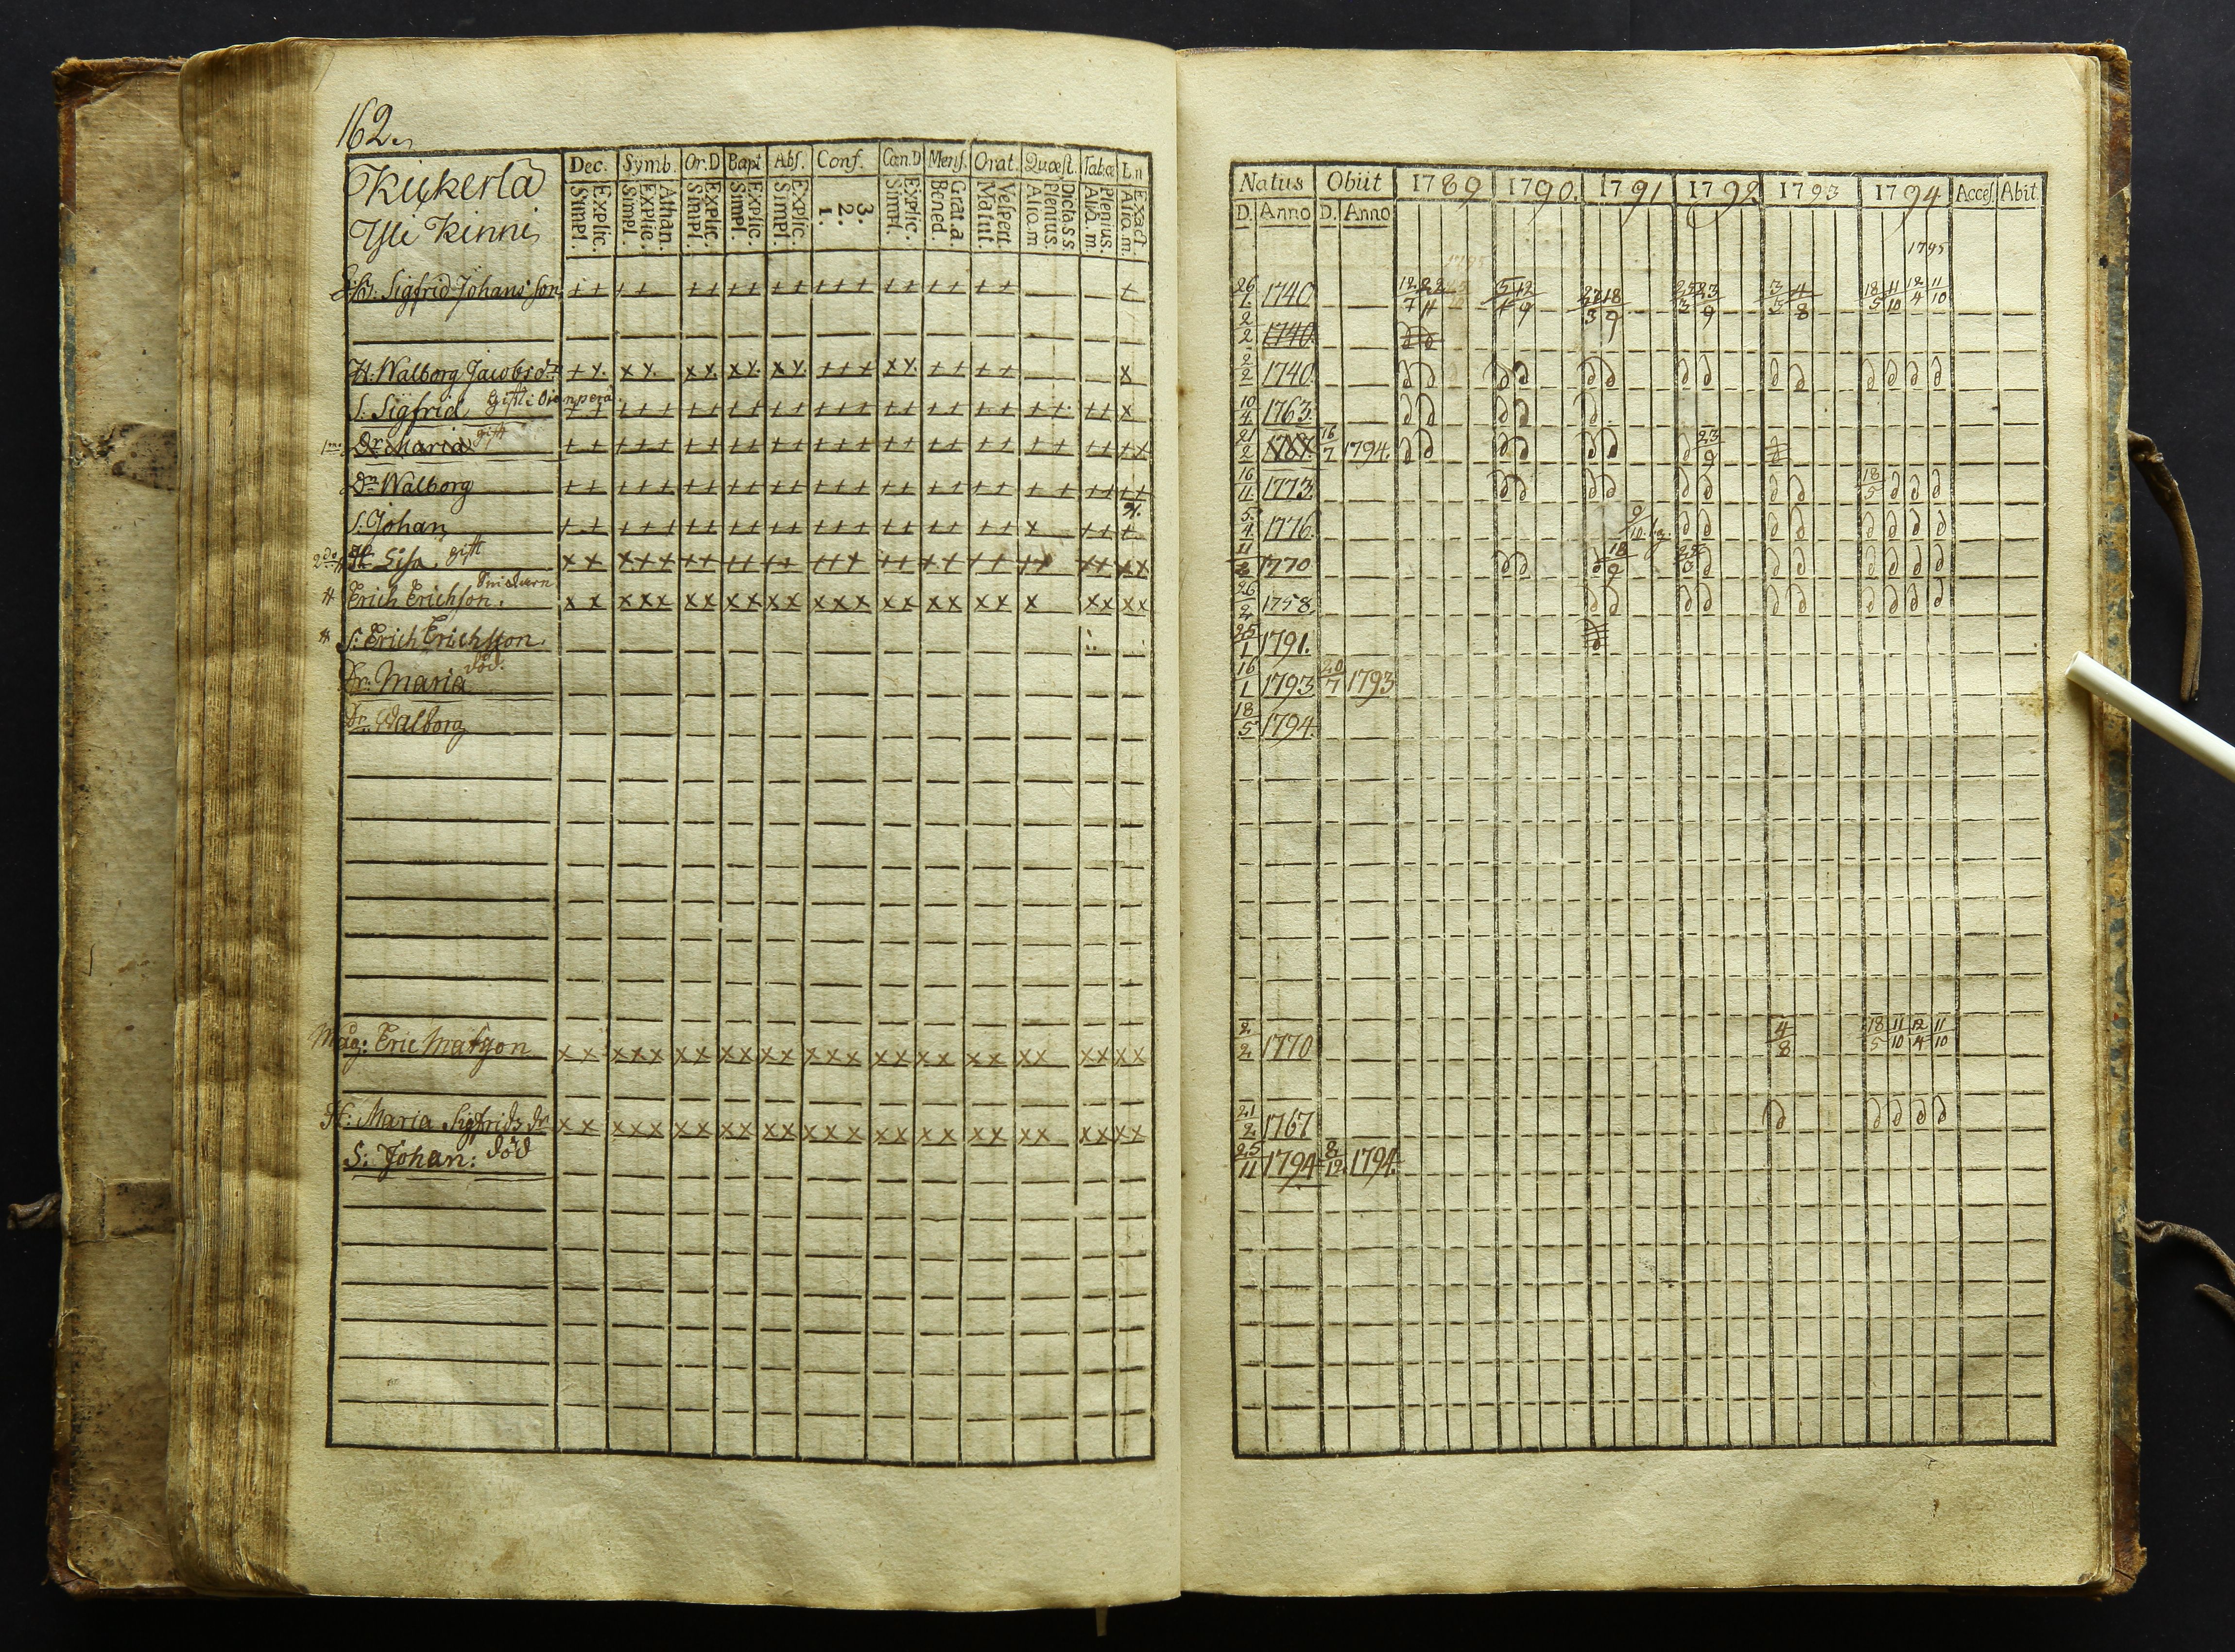 162.
Kickerlä
Yli Kinni
Dec. Symb. Or.D Bapt Abs. Conf. Cœn.D Mens. Orat. Quæst. Tabæ Ln
Explic. Simpl. Athan. Explic. Simpl. Explic. Simpl. Explic. Simpl. Explic. Simpl. 3. 2. 1. Explic. Simpl. Grat.a. Bened. Vespert. Matut. Dicta s s. Plenius. Aliq.m Plenius. Aliq.m. Exact Aliq.m.
Natus Obiit 1789 1790. 1791 1792 1793 1794 Acces. Abit
D. Anno D. Anno
1795
Sigfrid Johans son 26/1 1740 12/7 22/11 5/4 12/9 27/3 18/9 25/3 23/9 3/3 4/8 18/5 11/10 12/4 11/10
2/2 1740
H: Walborg Jacobs dr 2/2 1740
S: Sigfrid gift i 10/4 1763
1mo Dr Maria gift 21/2 16/7 1794. 23/9
Dr Walborg 16/11 1773 18/5
S: Johan 5/4 1776 9/10
2do H Lisa gift 11/8 1770 18/9 25/3
Erich Erichson. 26/2 1758
S: Erich Erichsson. 25/1 1791.
Dr: Maria död. 16/1 1793 20/7 1793
Dr. Walborg 18/5 1794.
Måg: Eric Matson 2/2 1770 4/8 18/5 11/10 12/4 11/10
H: Maria Sigfrids dr 21/2 1767
S: Johan: död 25/11 1794 8/12 1794